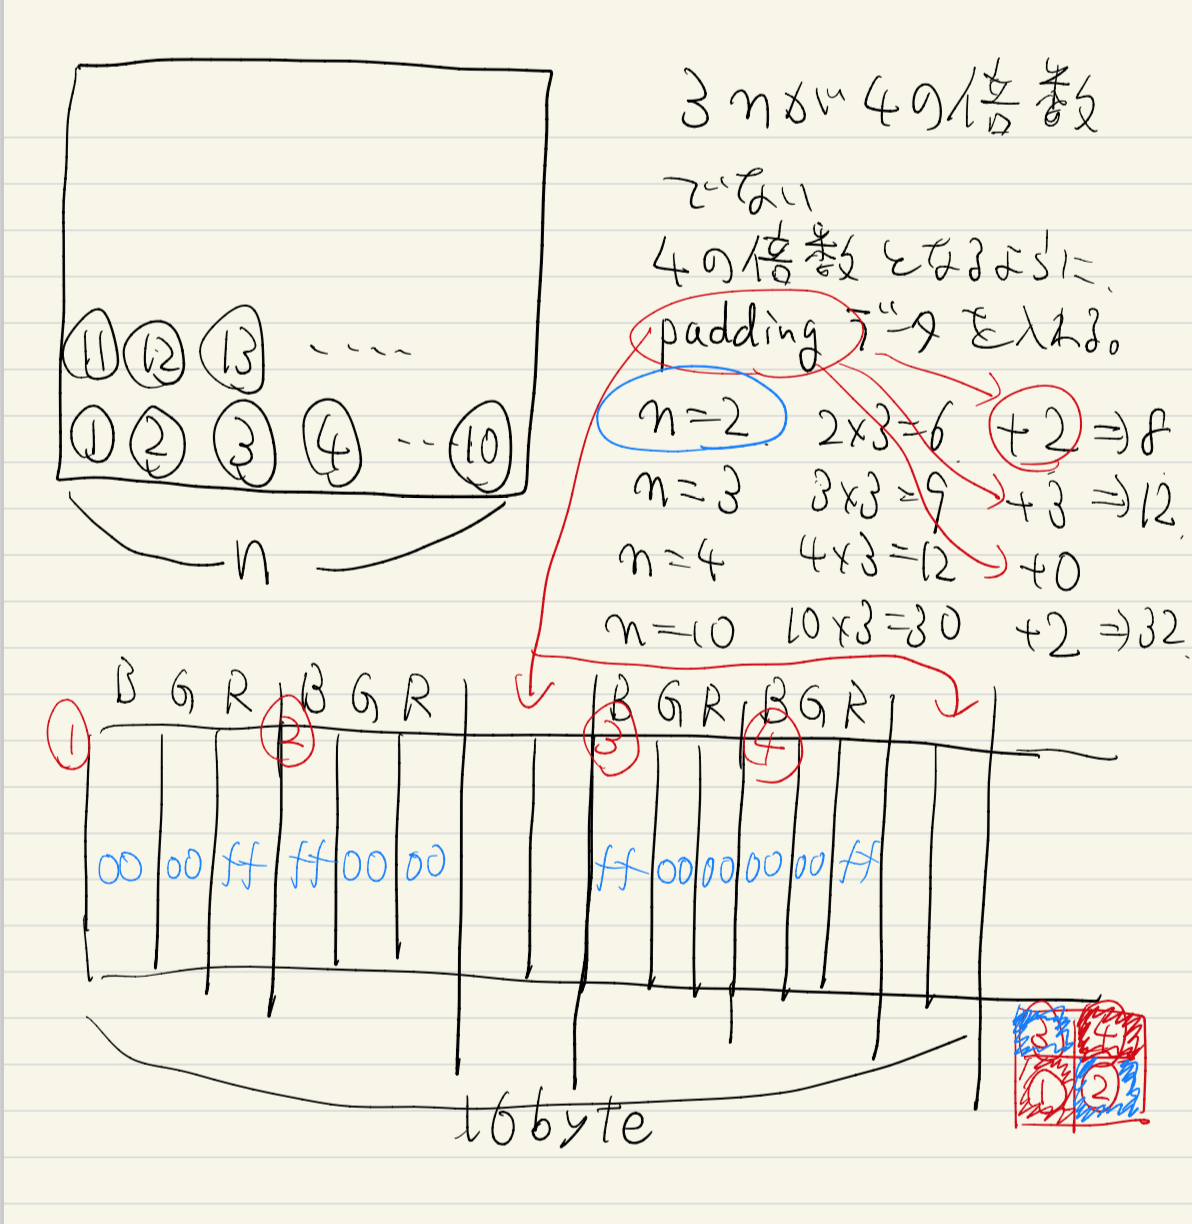 3nが4の倍数
でない
4の倍数となるように
paddingデータを入れる。
⑪ ⑫ ⑬ ‥‥
① ② ③ ④ ‥ ⑩
n
n=2 2×3=6 +2 ⇒8
n=3 3×3=9 +3 ⇒12
n=4 4×3=12 +0
n=10 10×3=30 +2 ⇒32
B G R B G R B G R B G R
① ② ③ ④
00 00 ff ff 00 00 ff 00 00 00 00 ff
16byte
③ ④
① ②